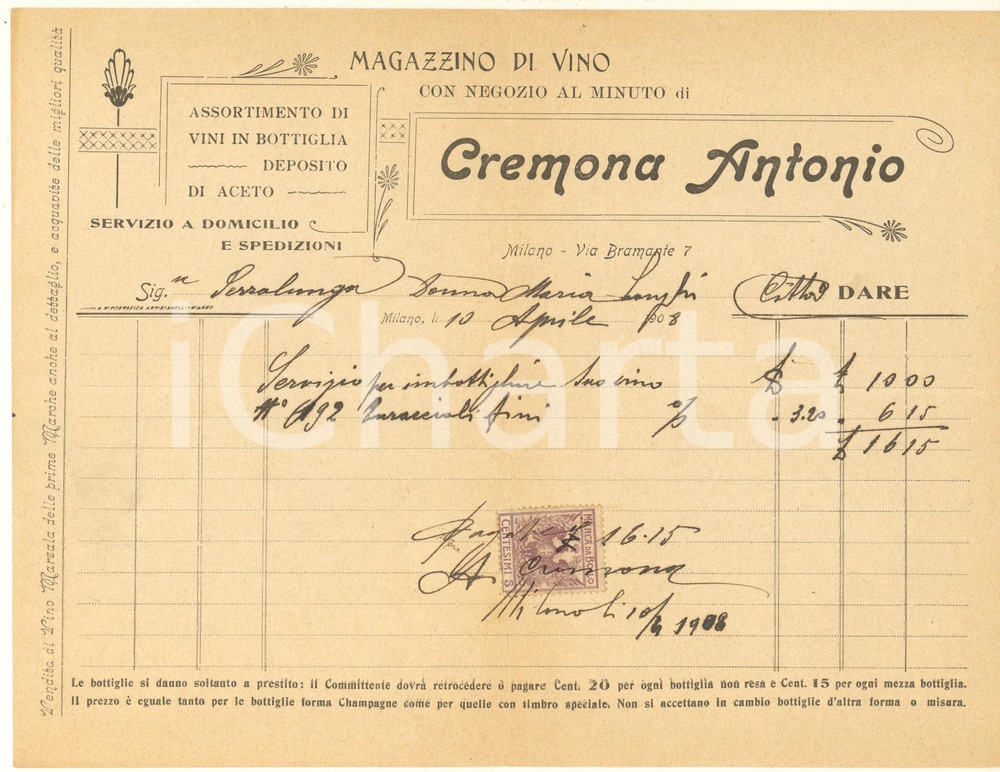 MAGAZZINO DI VINO
CON NEGOZIO AL MINUTO di
Cremona Antonio
ASSORTIMENTO DI
VINI IN BOTTIGLIA
DEPOSITO
DI ACETO
SERVIZIO A DOMICILIO
E SPEDIZIONI
Milano - Via Bramante 7
Sig.ra Serralunga Donna Maria Città DARE
Milano, li 10 Aprile 1908
Servizio per imbottigliare suo vino £ 10 00
N° 192 turaccioli fini % . 3.20 . 6 15
£ 16 15
£ 16.15
MARCA DA BOLLO
CENTESIMI 5
A Cremona
Milano li 10/4 1908
Le bottiglie si danno soltanto a prestito: il Committente dovrà retrocedere o pagare Cent. 20 per ogni bottiglia non resa e Cent. 15 per ogni mezza bottiglia.
Il prezzo è eguale tanto per le bottiglie forma Champagne come per quelle con timbro speciale. Non si accettano in cambio bottiglie d'altra forma o misura.
Vendita di Vino Marsala delle prime Marche anche al dettaglio, e acquavite delle migliori qualità
iCharta